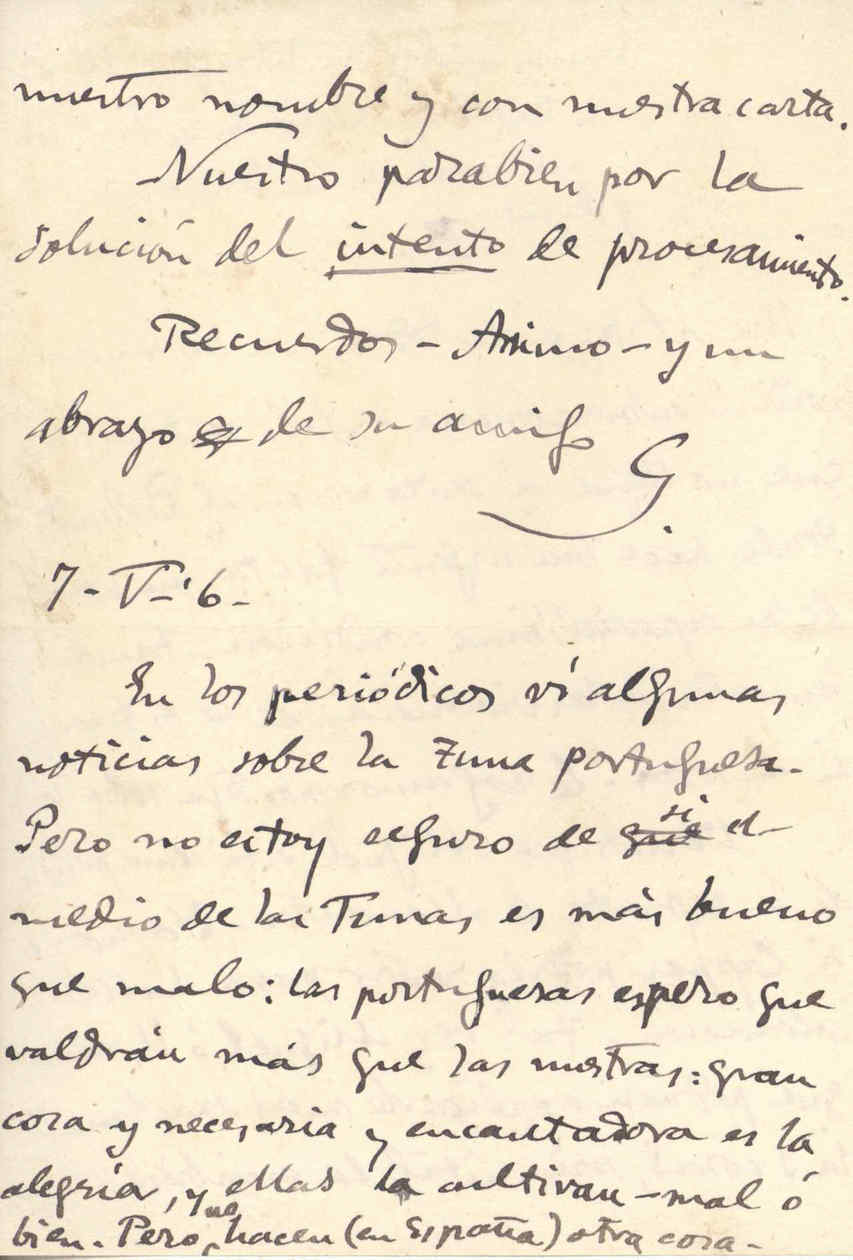 nuestro nombre y con nuestra carta.
Nuestro parabien por la
solución del intento de procesamiento.
Recuerdos - Animo - y un
abrazo de su amigo
G.
7-V-'6-
En los periódicos ví algunas
noticias sobre la Tuna portuguesa.
Pero no estoy seguro de que si el
medio de las Tunas es más bueno
que malo: las portuguesas espero que
valdrán más que las nuestras: gran
cosa y necesaria y encantadora es la
alegría, y ellas la cultivan - mal ó
bien. Pero ne hacen (en España) otra cosa -